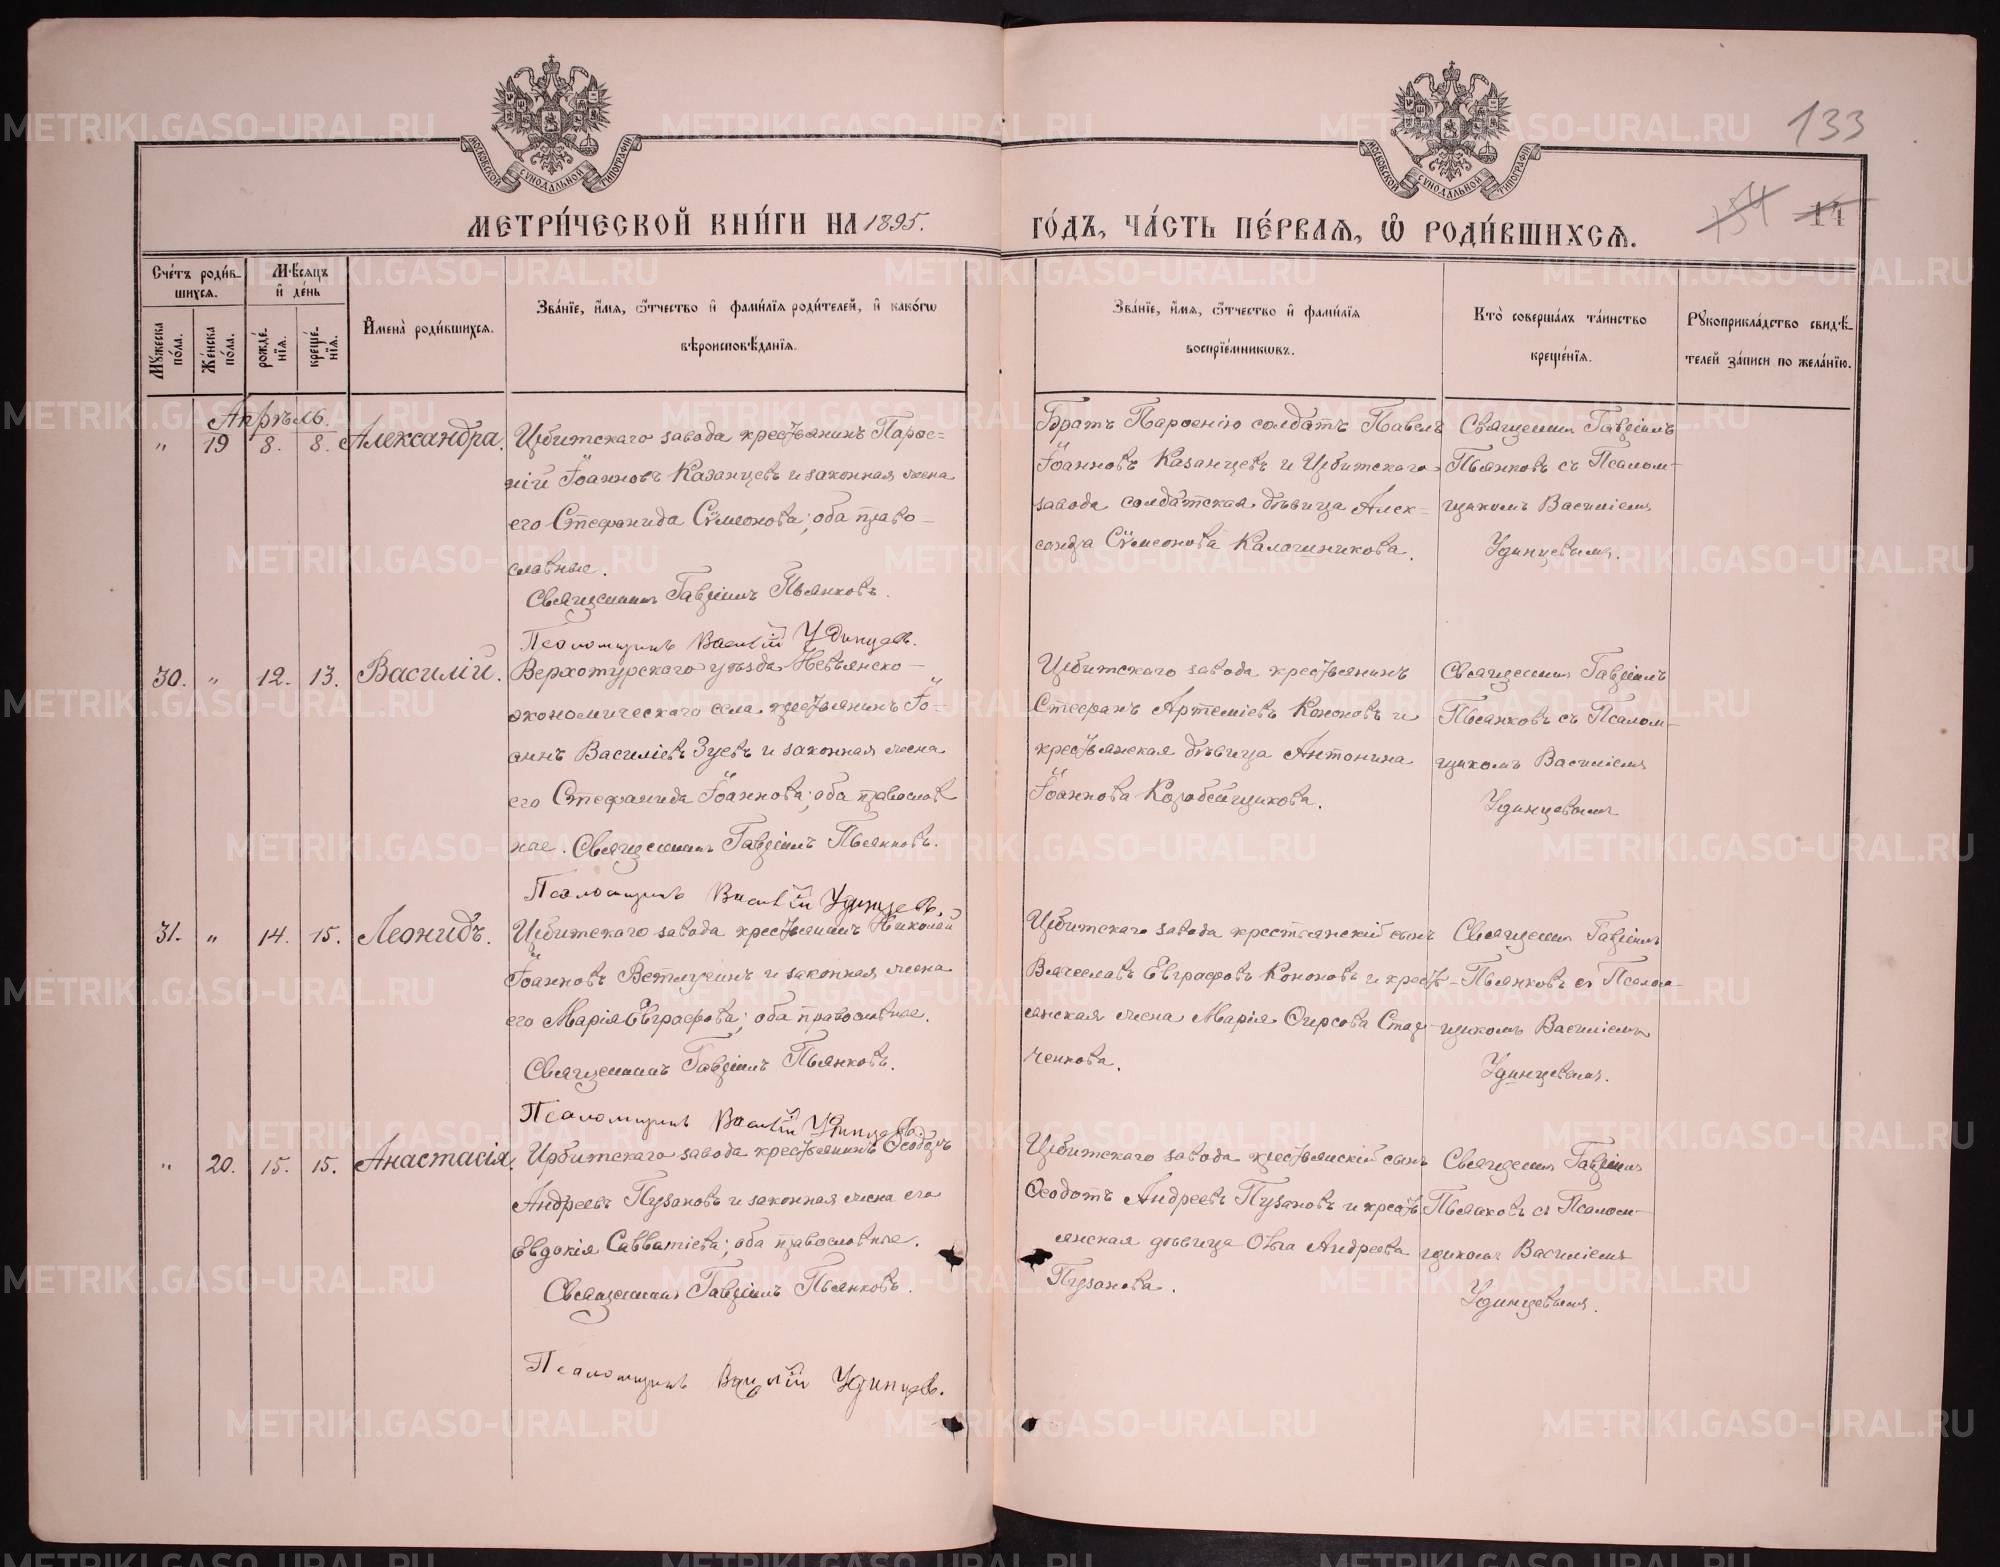 133
154 14
МОСКОВСКОЙ СУНОДАЛЬНОЙ ТИПОГРАФІИ
МОСКОВСКОЙ СУНОДАЛЬНОЙ ТИПОГРАФІИ
МЕТРИ́ЧЕСКОЙ КНИ́ГИ НА 1895.
ГО́ДЪ, ЧА́СТЬ ПЕ́РВАѦ, Ѡ҆ РОДИ́ВШИХСѦ.
Сче́тъ роди́в-
шихсѧ.
Мꙋ́жеска по́ла.
Же́нска по́ла.
Мѣ́сѧцъ
и҆ де́нь
рожде́нїѧ.
креще́нїѧ.
И҆мена̀ роди́вшихсѧ.
Зва́нїе, и҆́мѧ, ѻ҆́тчество и҆ фами́лїѧ роди́телей, и҆ како́гѡ
вѣроисповѣ́данїѧ.
Зва́нїе, и҆́мѧ, ѻ҆́тчество и҆ фами́лїѧ
воспрїе́мникѡвъ.
Кто̀ соверша́лъ та́инство
креще́нїѧ.
Рꙋкоприкла́дство свидѣ́-
телей за́писи по жела́нїю.
Апрѣль.
" 19 8. 8. Александра.
Ирбитскаго завода крестьянинъ Парѳе-
ній Іоанновъ Казанцевъ и законная жена
его Стефанида Сѵмеонова; оба право-
славные.
Священникъ Гавріилъ Пьянковъ.
Псаломщикъ Василій Удинцевъ.
Братъ Парѳенію солдатъ Павелъ
Іоанновъ Казанцевъ и Ирбитскаго
завода солдатская дѣвица Алек-
сандра Сѵмеонова Калачникова.
Священникъ Гавріилъ
Пьянковъ съ Псалом-
щикомъ Василіемъ
Удинцевымъ.
30. " 12. 13. Василій.
Верхотурскаго уѣзда Невьянско-
экономическаго села крестьянинъ Іо-
аннъ Василіевъ Зуевъ и законная жена
его Стефанида Іоаннова; оба православ
ные. Священникъ Гавріилъ Пьянковъ.
Псаломщикъ Василій Удинцевъ.
Ирбитскаго завода крестьянинъ
Стефанъ Артеміевъ Кононовъ и
крестьянская дѣвица Антонина
Іоаннова Коробейщикова.
Священникъ Гавріилъ
Пьянковъ съ Псалом-
щикомъ Василіемъ
Удинцевымъ
31. " 14. 15. Леонидъ.
Ирбитскаго завода крестьянинъ Николай
Іоанновъ Ветлугинъ и законная жена
его Марія Евграфова; оба православные.
Священникъ Гавріилъ Пьянковъ.
Псаломщикъ Василій Удинцевъ.
Ирбитскаго завода крестьянскій сынъ
Вячеславъ Евграфовъ Кононовъ и кресть-
янская жена Марія Ѳирсова Стар-
ченкова.
Священникъ Гавріилъ
Пьянковъ съ Псалом-
щикомъ Василіемъ
Удинцевымъ.
" 20. 15. 15. Анастасія.
Ирбитскаго завода крестьянинъ Ѳеодоръ
Андреевъ Пузановъ и законная жена его
Евдокія Савватіева; оба православные.
Священникъ Гавріилъ Пьянковъ.
Псаломщикъ Василій Удинцевъ.
Ирбитскаго завода крестьянскій сынъ
Ѳеодотъ Андреевъ Пузановъ и кресть
янская дѣвица Ольга Андреева
Пузанова.
Священникъ Гавріилъ
Пьянковъ съ Псалом-
щикомъ Василіемъ
Удинцевымъ.